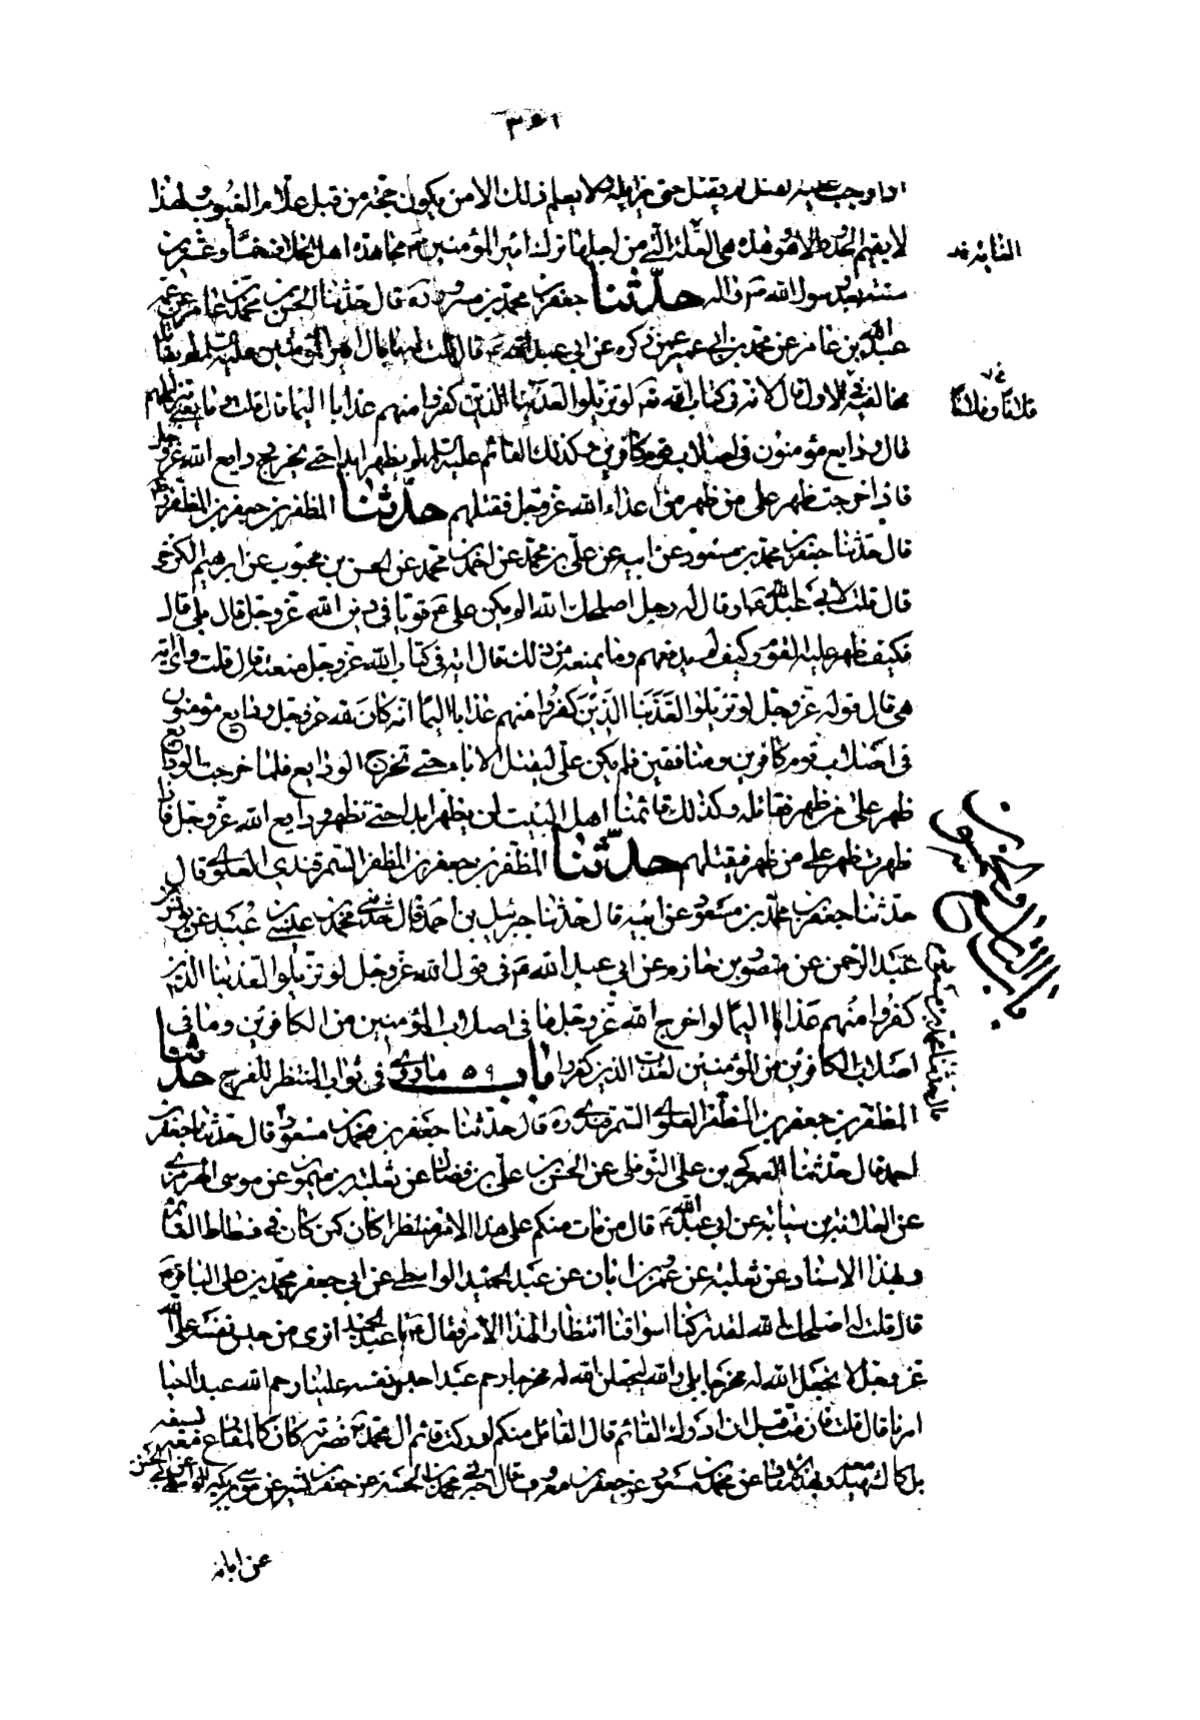 ٣٦١
اذا وجب عليه لقتل لم يقتل حتى يزايله ولا يعلم ذلك الا من يكون حجة من قبل علام الغيوب ولهذا
لا يقيم الحدود الا هو وهذه هى العلة التى من اجلها ترك امير المؤمنين ع مجاهدة اهل الخلاف خمسا وعشرين
سنة بعد رسول الله ص واله حدّثنا جعفر بن محمد بن مسرور ره قال حدثنا الحسين بن محمد بن عامر عن عمه
عبد الله بن عامر عن محمد بن ابى عمير عمن ذكره عن ابى عبد الله ع قال قلت له ما بال امير المؤمنين عليه السلم لم يقاتل
مخالفيه فى الاول قال لاية فى كتاب الله تعه لو تزيلوا لعذبنا الذين كفروا منهم عذابا اليما قال قلت وما يعنى بتزايلهم
قال ودايع مؤمنون فى اصلاب قوم كافرين وكذلك القائم عليه السلم لن يظهر ابدا حتى تخرج ودايع الله عز وجل
فاذا خرجت ظهر على من ظهر من اعداء الله عز وجل فقتلهم حدّثنا المظفر بن جعفر بن المظفر
قال حدثنا جعفر بن محمد بن مسعود عن ابيه عن على بن محمد عن احمد بن محمد عن الحسن بن محبوب عن ابرهيم الكرخى
قال قلت لابى عبد الله ع او قال له رجل اصلحك الله الم يكن على ع قويا فى دين الله عز وجل قال بلى قال
فكيف ظهر عليه القوم وكيف لم يدفعهم وما يمنعه من ذلك قال اية فى كتاب الله عز وجل منعته قال قلت واى اية
هى قال قوله عز وجل لو تزيلوا لعذبنا الذين كفروا منهم عذابا اليما انه كان لله عز وجل ودايع مؤمنون
فى اصلاب قوم كافرين ومنافقين فلم يكن على ليقتل الاباء حتى تخرج الودايع فلما خرجت الودايع
ظهر على من ظهر فقاتله وكذلك قائمنا اهل البيت لن يظهر ابدا حتى تظهر ودايع الله عز وجل فاذا
ظهرت ظهر على من ظهر فيقتلهم حدّثنا المظفر بن جعفر بن المظفر السمرقندى العلوى قال
حدثنا جعفر بن محمد بن مسعود عن ابيه قال حدثنا جبرئيل بن احمد قال حدثنى محمد بن عيسى بن عبيد عن يونس بن
عبد الرحمن عن منصور بن حازم عن ابى عبد الله ع فى قول الله عز وجل لو تزيلوا لعذبنا الذين
كفروا منهم عذابا اليما لو اخرج الله عز وجل ما فى اصلاب المؤمنين من الكافرين وما فى
اصلاب الكافرين من المؤمنين لعذبت الذين كفروا باب ٥٩ ماروى فى ثواب المنتظر للفرج حدّثنا
المظفر بن جعفر بن المظفر العلوى السمرقندى ره قال حدثنا جعفر بن محمد بن مسعود قال حدثنا جعفر بن
احمد قال حدثنا العمركى بن على البوفكى عن الحسن بن على بن فضال عن ثعلبة بن ميمون عن موسى النميرى
عن العلاء بن سيابة عن ابى عبد الله ع قال من مات منكم على هذا الامر منتظرا كان كمن كان فى فسطاط القائم
وبهذا الاسناد عن ثعلبة عن عمر بن ابان عن عبد الحميد الواسطى عن ابى جعفر محمد بن على الباقر ع
قال قلت له اصلحك الله لقد تركنا اسواقنا انتظارا لهذا الامر فقال ع يا عبد الحميد اترى من حبس نفسه على الله
عز وجل لا يجعل الله له مخرجا بلى والله ليجعلن الله له مخرجا رحم عبدا حبس نفسه علينا رحم الله عبدا احيا
امرنا قال قلت فان مت قبل ان ادرك القائم قال القائل منكم لو ادركت قائم ال محمد ع نصرته كان كالمقارع معه بسيفه
بل كالشهيد معه وبهذا الاسناد عن محمد بن مسعود عن جعفر بن معروف قال اخبرنى محمد بن الحسين عن جعفر بن بشير عن موسى بن بكر الواسطى عن ابى الحسن
عن ابائه